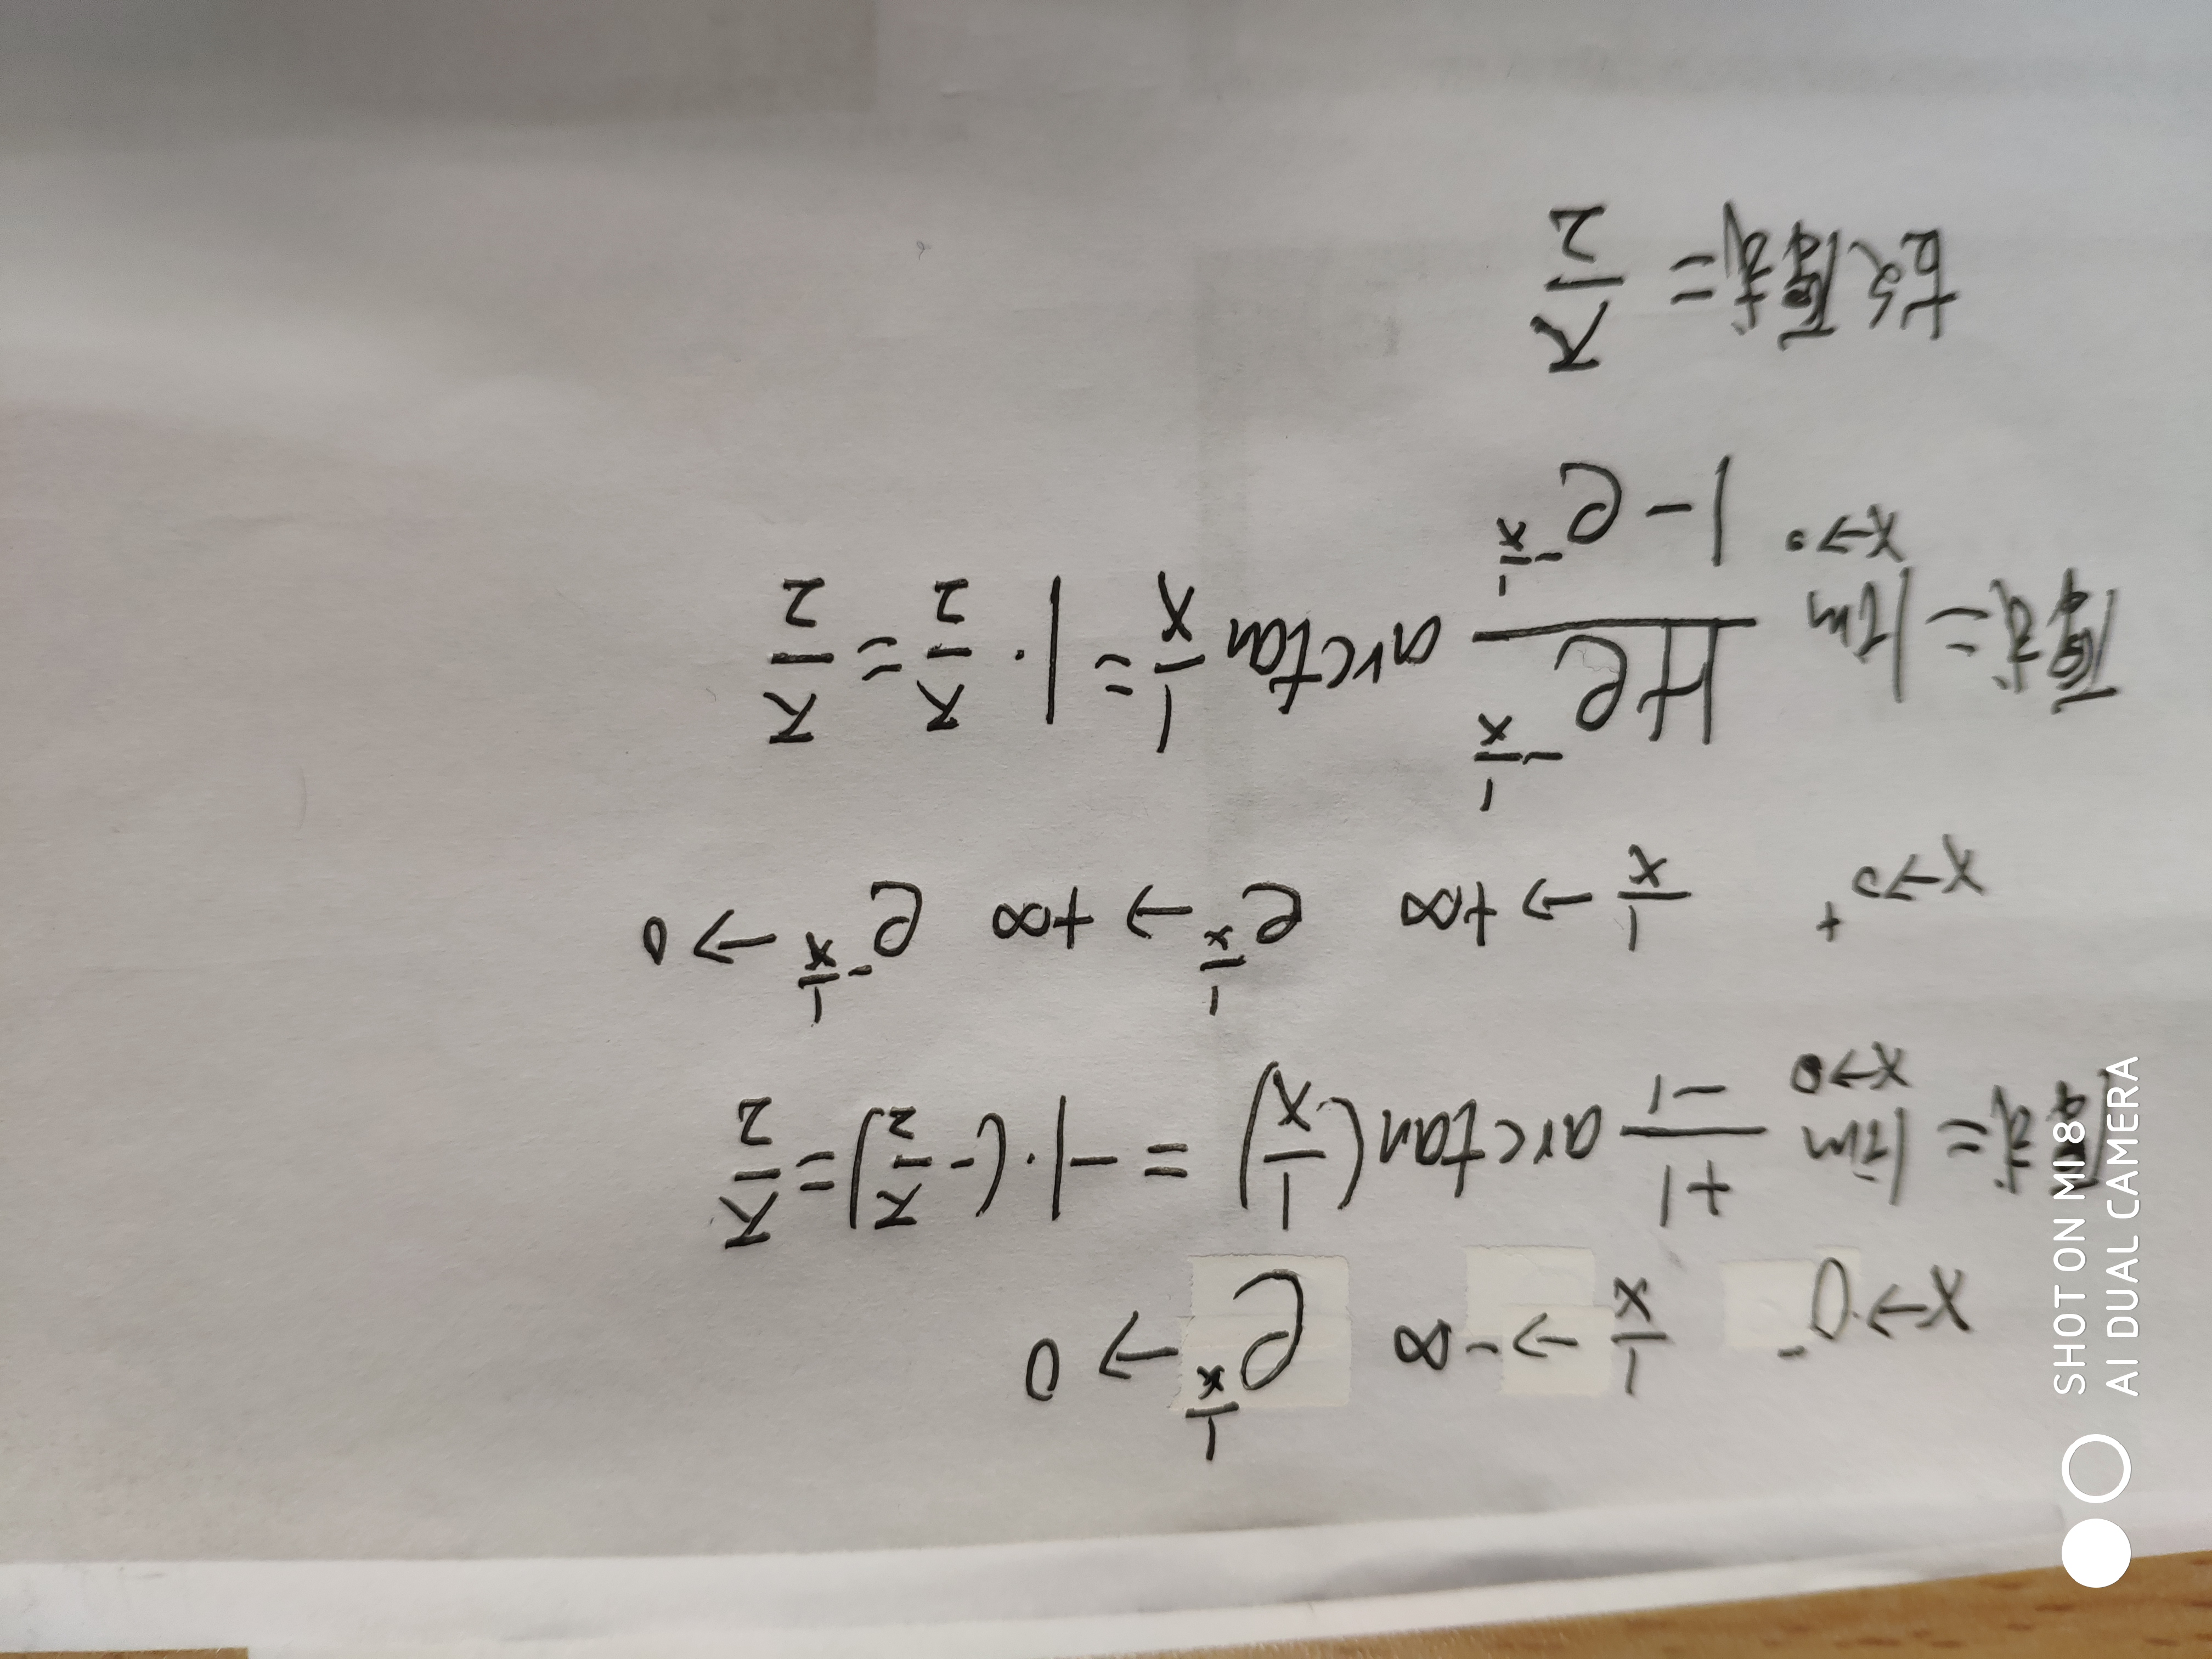 x→0⁻ 1/x→-∞ e^(1/x)→0
原式=lim x→0 +1/-1 arctan(1/x)=-1·(-π/2)=π/2
x→0⁺ 1/x→+∞ e^(1/x)→+∞ e^(-1/x)→0
原式=lim x→0 (1+e^(-1/x))/(1-e^(-1/x)) arctan 1/x=1·π/2=π/2
故原式=π/2
SHOT ON MI 8
AI DUAL CAMERA